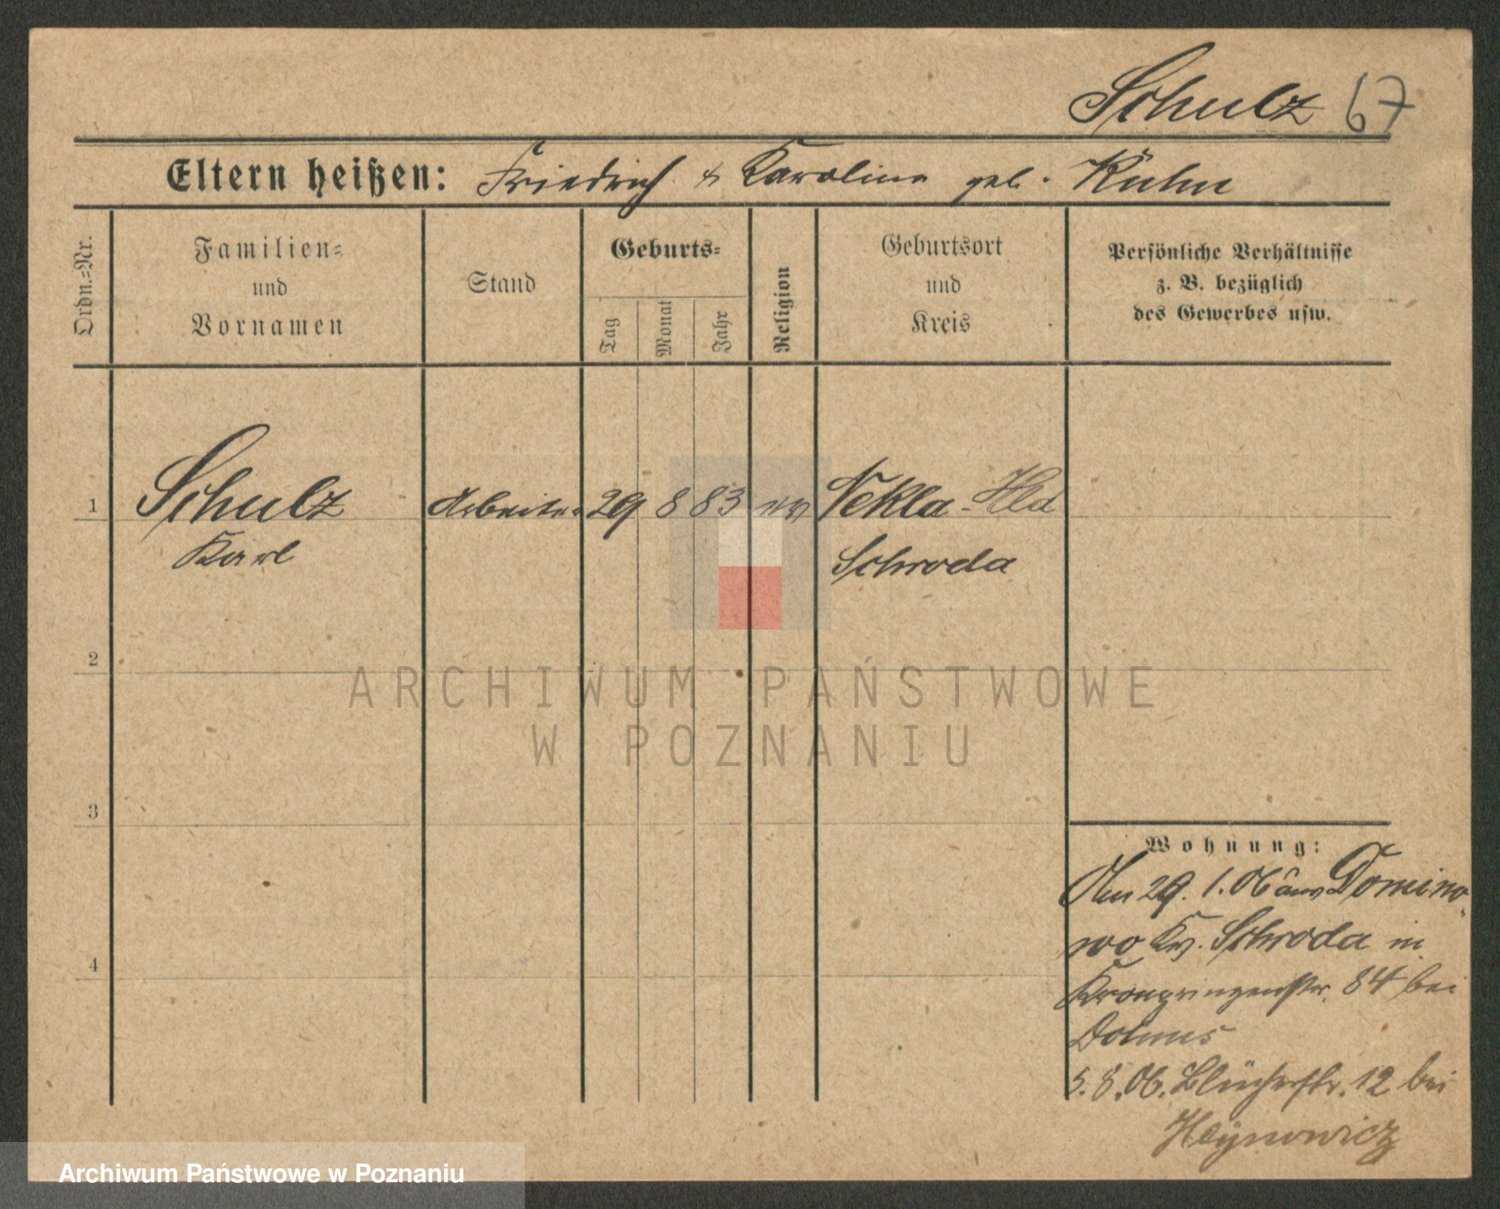 Schulz 67
Eltern heißen: Friedrich & Karoline geb. Kühn
Ordn.=Nr.
Familien=
und
Vornamen
Stand
Geburts=
Tag
Monat
Jahr
Religion
Geburtsort
und
Kreis
Persönliche Verhältnisse
z. B. bezüglich
des Gewerbes usw.
1 Schulz Arbeiter 29 8 83 ev Nekla-Hld
Karl Schroda
2
3
4
Wohnung:
29. 1. 06 Domino-
wo Kr. Schroda in
Kronprinzenstr. 84 bei
06. Blücherstr. 12 bei
ARCHIWUM PAŃSTWOWE
W POZNANIU
Archiwum Państwowe w Poznaniu